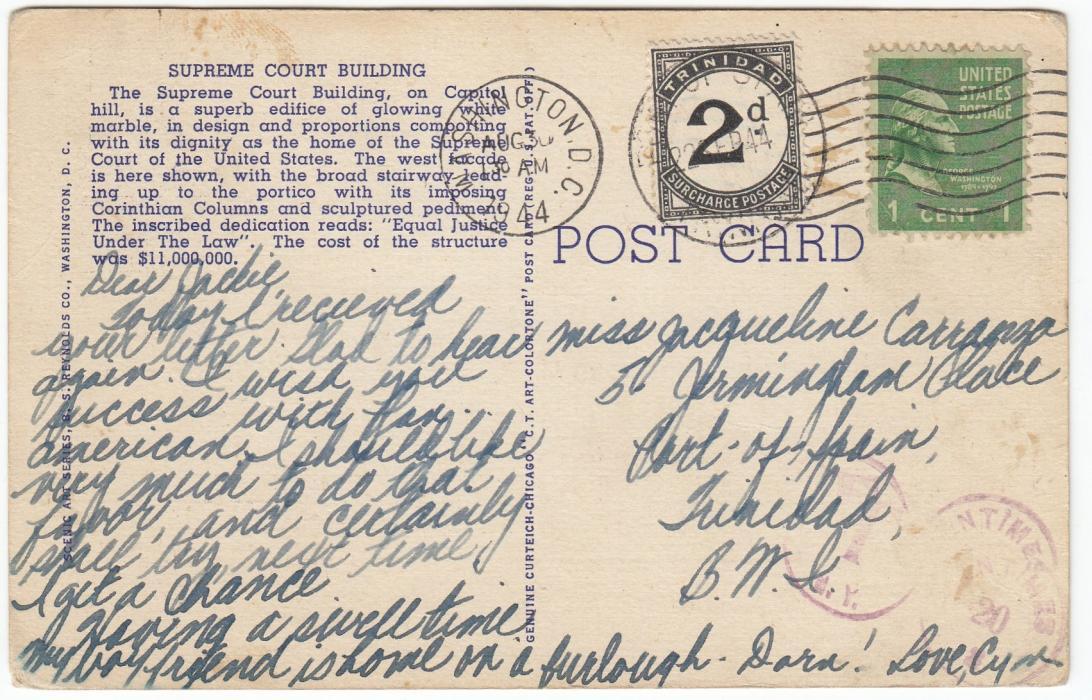 SUPREME COURT BUILDING
The Supreme Court Building, on Capitol
hill, is a superb edifice of glowing white
marble, in design and proportions comporting
with its dignity as the home of the Supreme
Court of the United States. The west facade
is here shown, with the broad stairway lead-
ing up to the portico with its imposing
Corinthian Columns and sculptured pediment.
The inscribed dedication reads: "Equal Justice
Under The Law". The cost of the structure
was $11,000,000.
SCENIC ART SERIES, B. S. REYNOLDS CO., WASHINGTON, D. C.
Dear Jackie,
Today I recieved
your letter. Glad to hear
again. I wish you
success with Pan
American. I should like
very much to do that
favor, and certainly
shall try next time
I get a chance
Having a swell time.
My boyfriend is home on a furlough. Darn! Love, Cyn
GENUINE CURTEICH-CHICAGO "C.T. ART-COLORTONE" POST CARD (REG. U.S. PAT. OFF.)
WASHINGTON, D.C.
AUG 30
AM
1944
TRINIDAD
2d
SURCHARGE POSTAGE
SEP 44
UNITED
STATES
POSTAGE
GEORGE
WASHINGTON
1789-1797
1 CENT 1
POST CARD
Miss Jacqueline Carranza
5 Jerningham Place
Port-of-Spain,
Trinidad,
B.W.I.
N.Y.
NTIMES
20